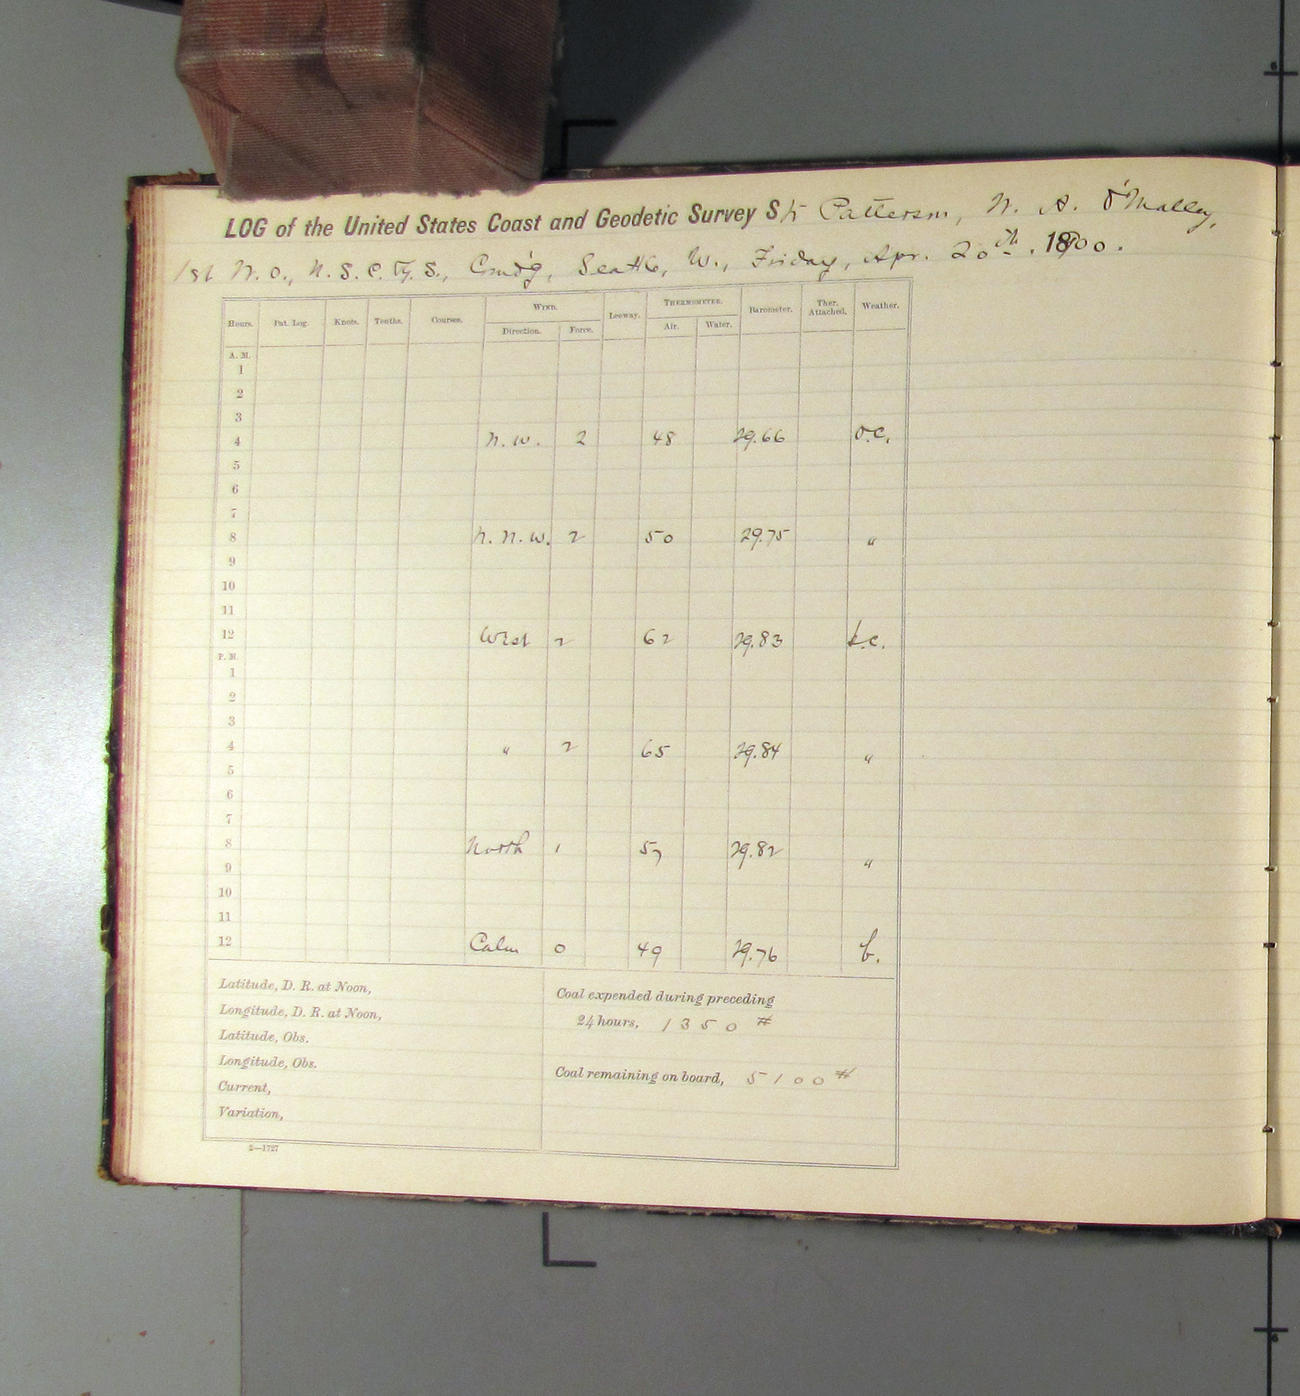 LOG of the United States Coast and Geodetic Survey Str Patterson, N. A. O'Malley,
1st W. O., U. S. C. & G. S., Comd'g, Seattle, W., Friday, Apr. 20th, 1900.
Hours. Pat. Log. Knots. Tenths. Courses. WIND. Leeway. THERMOMETER. Barometer. Ther. Attached. Weather.
Direction. Force. Air. Water.
A. M.
1
2
3
4 N. W. 2 48 29.66 o.c.
5
6
7
8 N. N. W. 2 50 29.75 "
9
10
11
12 West 2 62 29.83 b.c.
P. M.
1
2
3
4 " 2 65 29.84 "
5
6
7
8 North 1 57 29.82 "
9
10
11
12 Calm 0 49 29.76 b.
Latitude, D. R. at Noon,
Longitude, D. R. at Noon,
Latitude, Obs.
Longitude, Obs.
Current,
Variation,
Coal expended during preceding
24 hours, 1350 #
Coal remaining on board, 5100 #
2—1727